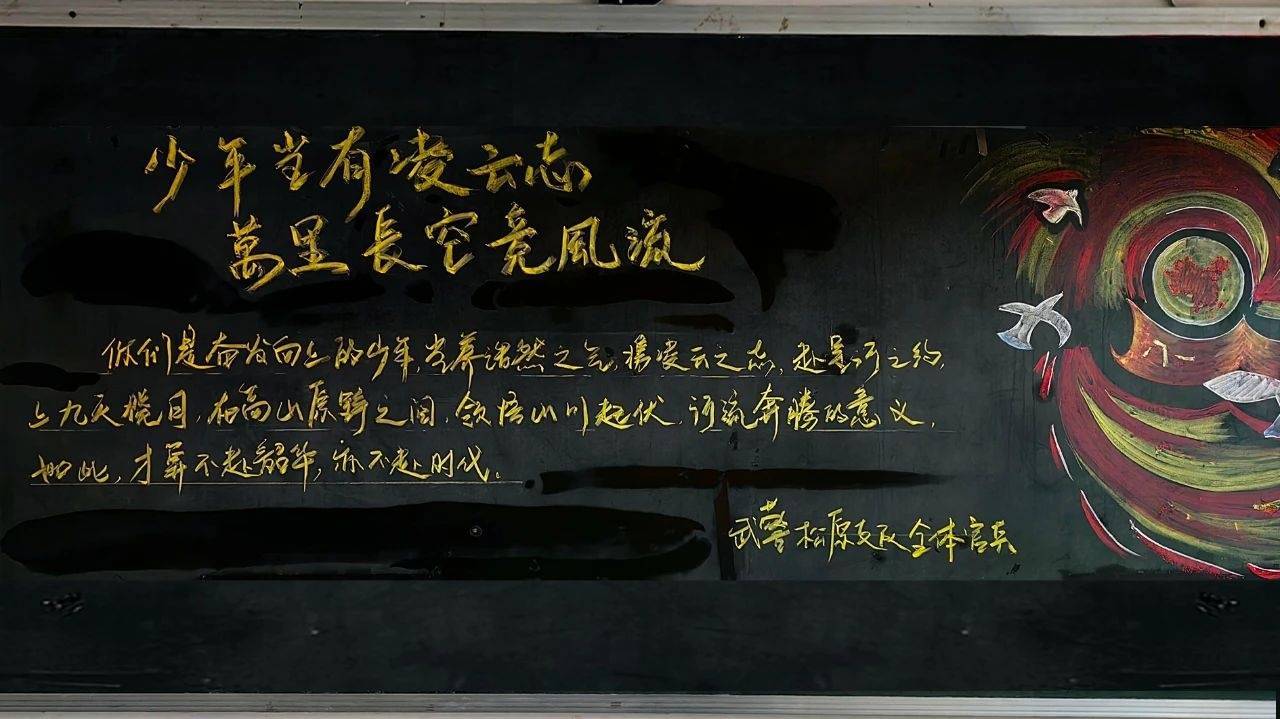 少年当有凌云志
萬里長空竞風流
你们是奋发向上的少年,当养浩然之气,携凌云之志,赴星河之约,
上九天揽月,在高山原野之间,领悟山川起伏,河流奔腾的意义,
如此,才算不赴韶华,亦不赴时代。
武警松原支队全体官兵
八一